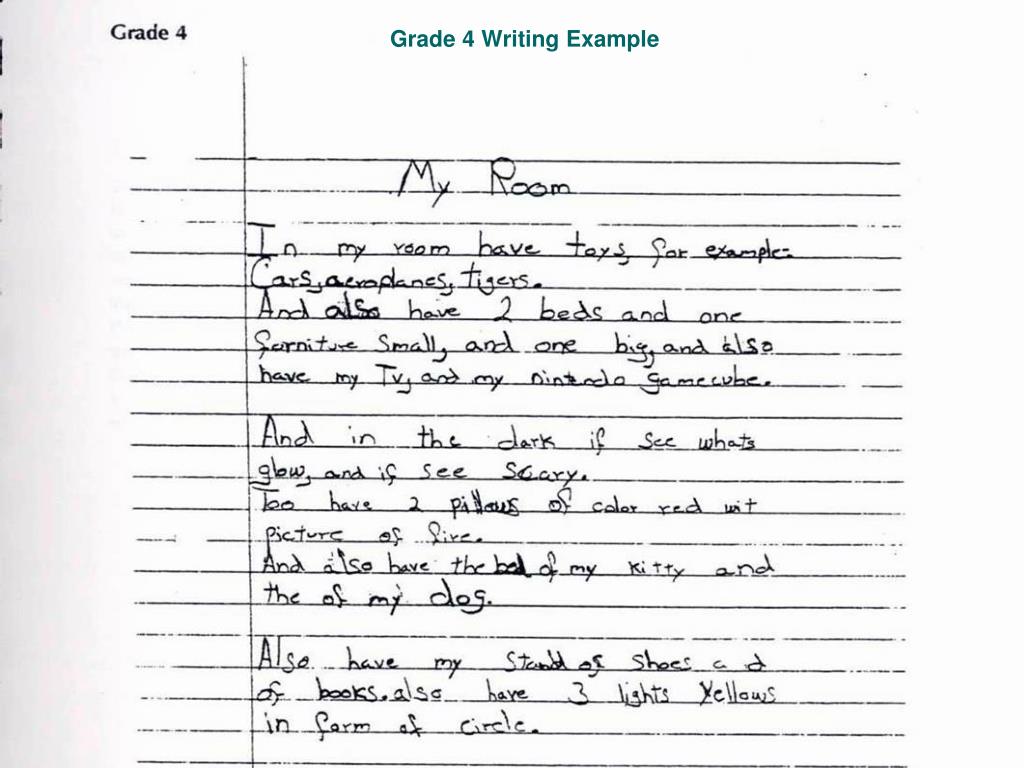 Grade 4
Grade 4 Writing Example
My Room
In my room have toys, for example:
Cars, aeroplanes, tigers.
And also have 2 beds and one
forniture small, and one big, and also
have my Tv, and my nintendo gamecube.
And in the dark if see whats
glow, and if see scary.
Too have 2 pillows of color red wit
picture of fire.
And also have the bed of my kitty and
the of my dog.
Also have my stand of shoes a d
of books. also have 3 lights yellows
in form of circle.